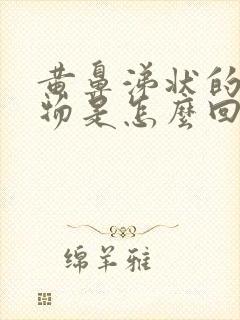 黄鼻涕状的
物是怎麼回
绵羊雅